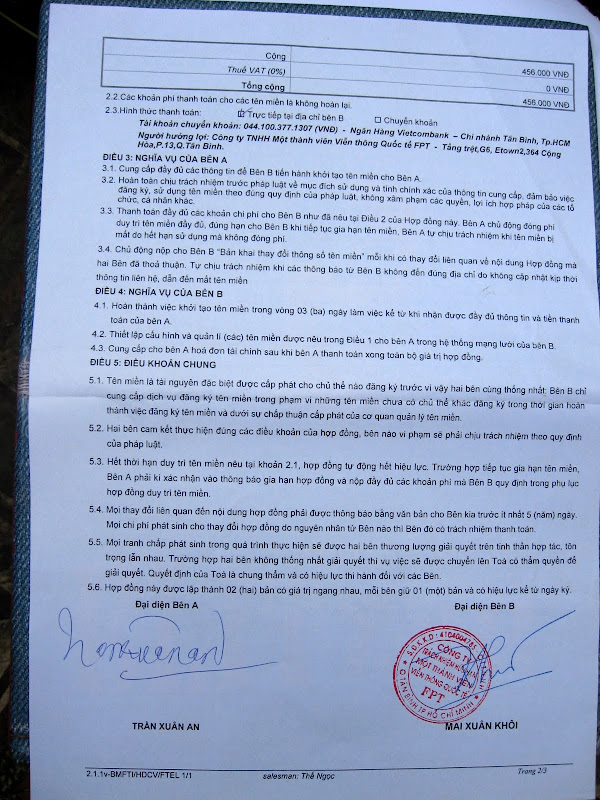 Cộng 456.000 VNĐ
Thuế VAT (0%) 0 VNĐ
Tổng cộng 456.000 VNĐ
2.2.Các khoản phí thanh toán cho các tên miền là không hoàn lại.
2.3.Hình thức thanh toán: Trực tiếp tại địa chỉ bên B Chuyển khoản
Tài khoản chuyển khoản: 044.100.377.1307 (VNĐ) - Ngân Hàng Vietcombank – Chi nhánh Tân Bình, Tp.HCM
Người hưởng lợi: Công ty TNHH Một thành viên Viễn thông Quốc tế FPT - Tầng trệt,G6, Etown2,364 Cộng
Hòa,P.13,Q.Tân Bình.
ĐIỀU 3: NGHĨA VỤ CỦA BÊN A
3.1. Cung cấp đầy đủ các thông tin để Bên B tiến hành khởi tạo tên miền cho Bên A.
3.2. Hoàn toàn chịu trách nhiệm trước pháp luật về mục đích sử dụng và tính chính xác của thông tin cung cấp, đảm bảo việc
đăng ký, sử dụng tên miền theo đúng quy định của pháp luật, không xâm phạm các quyền, lợi ích hợp pháp của các tổ
chức, cá nhân khác.
3.3. Thanh toán đầy đủ các khoản chi phí cho Bên B như đã nêu tại Điều 2 của Hợp đồng này. Bên A chủ động đóng phí
duy trì tên miền đầy đủ, đúng hạn cho Bên B khi tiếp tục gia hạn tên miền, Bên A tự chịu trách nhiệm khi tên miền bị
mất do hết hạn sử dụng mà không đóng phí.
3.4. Chủ động nộp cho Bên B "Bản khai thay đổi thông số tên miền" mỗi khi có thay đổi liên quan về nội dung Hợp đồng mà
hai Bên đã thoả thuận. Tự chịu trách nhiệm khi các thông báo từ Bên B không đến đúng địa chỉ do không cập nhật kịp thời
thông tin liên hệ, dẫn đến mất tên miền
ĐIỀU 4: NGHĨA VỤ CỦA BÊN B
4.1. Hoàn thành việc khởi tạo tên miền trong vòng 03 (ba) ngày làm việc kể từ khi nhận được đầy đủ thông tin và tiền thanh
toán của bên A.
4.2. Thiết lập cấu hình và quản lí (các) tên miền được nêu trong Điều 1 cho bên A trong hệ thống mạng lưới của bên B.
4.3. Cung cấp cho bên A hoá đơn tài chính sau khi bên A thanh toán xong toàn bộ giá trị hợp đồng.
ĐIỀU 5: ĐIỀU KHOẢN CHUNG
5.1. Tên miền là tài nguyên đặc biệt được cấp phát cho chủ thể nào đăng ký trước vì vậy hai bên cùng thống nhất: Bên B chỉ
cung cấp dịch vụ đăng ký tên miền trong phạm vi những tên miền chưa có chủ thể khác đăng ký trong thời gian hoàn
thành việc đăng ký tên miền và dưới sự chấp thuận cấp phát của cơ quan quản lý tên miền.
5.2. Hai bên cam kết thực hiện đúng các điều khoản của hợp đồng, bên nào vi phạm sẽ phải chịu trách nhiệm theo quy định
của pháp luật.
5.3. Hết thời hạn duy trì tên miền nêu tại khoản 2.1, hợp đồng tự động hết hiệu lực. Trường hợp tiếp tục gia hạn tên miền,
Bên A phải kí xác nhận vào thông báo gia hạn hợp đồng và nộp đầy đủ các khoản phí mà Bên B quy định trong phụ lục
hợp đồng duy trì tên miền.
5.4. Mọi thay đổi liên quan đến nội dung hợp đồng phải được thông báo bằng văn bản cho Bên kia trước ít nhất 5 (năm) ngày.
Mọi chi phí phát sinh cho thay đổi hợp đồng do nguyên nhân từ Bên nào thì Bên đó có trách nhiệm thanh toán.
5.5. Mọi tranh chấp phát sinh trong quá trình thực hiện sẽ được hai bên thương lượng giải quyết trên tinh thần hợp tác, tôn
trọng lẫn nhau. Trường hợp hai bên không thống nhất giải quyết thì vụ việc sẽ được chuyển lên Toà có thẩm quyền để
giải quyết. Quyết định của Toà là chung thẩm và có hiệu lực thi hành đối với các Bên.
5.6. Hợp đồng này được lập thành 02 (hai) bản có giá trị ngang nhau, mỗi bên giữ 01 (một) bản và có hiệu lực kể từ ngày ký.
Đại diện Bên A Đại diện Bên B
CÔNG TY
TRÁCH NHIỆM HỮU HẠN
MỘT THÀNH VIÊN
VIỄN THÔNG QUỐC TẾ
FPT
Q.TÂN BÌNH TP.HỒ CHÍ MINH
TRẦN XUÂN AN MAI XUÂN KHÔI
2.1.1v-BMFTI/HDCV/FTEL 1/1 salesman: Thế Ngọc Trang 2/3